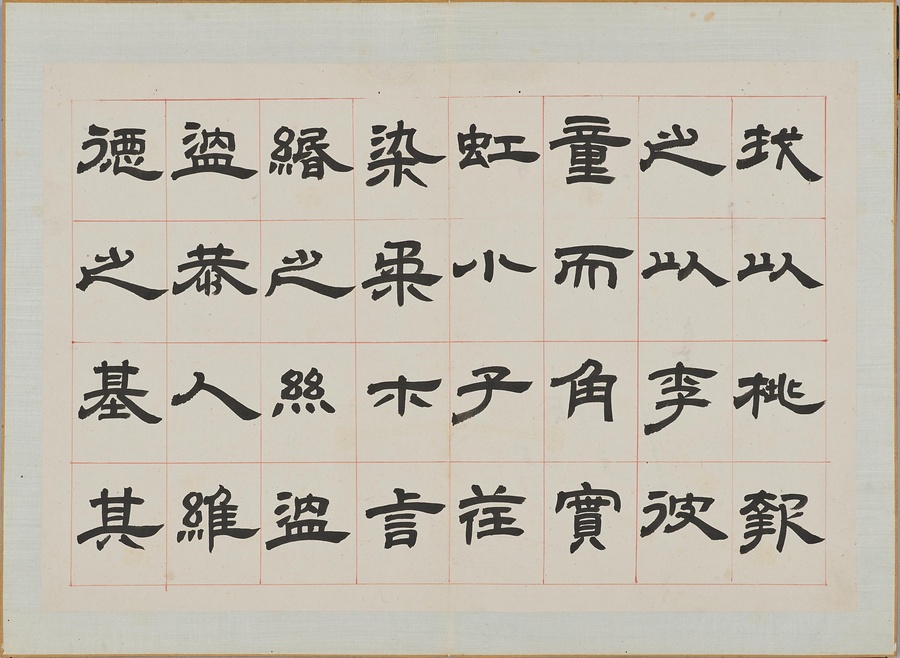 我以桃報
之以李彼
童而角實
虹小子荏
染柔木言
緡之絲溫
溫恭人維
德之基其